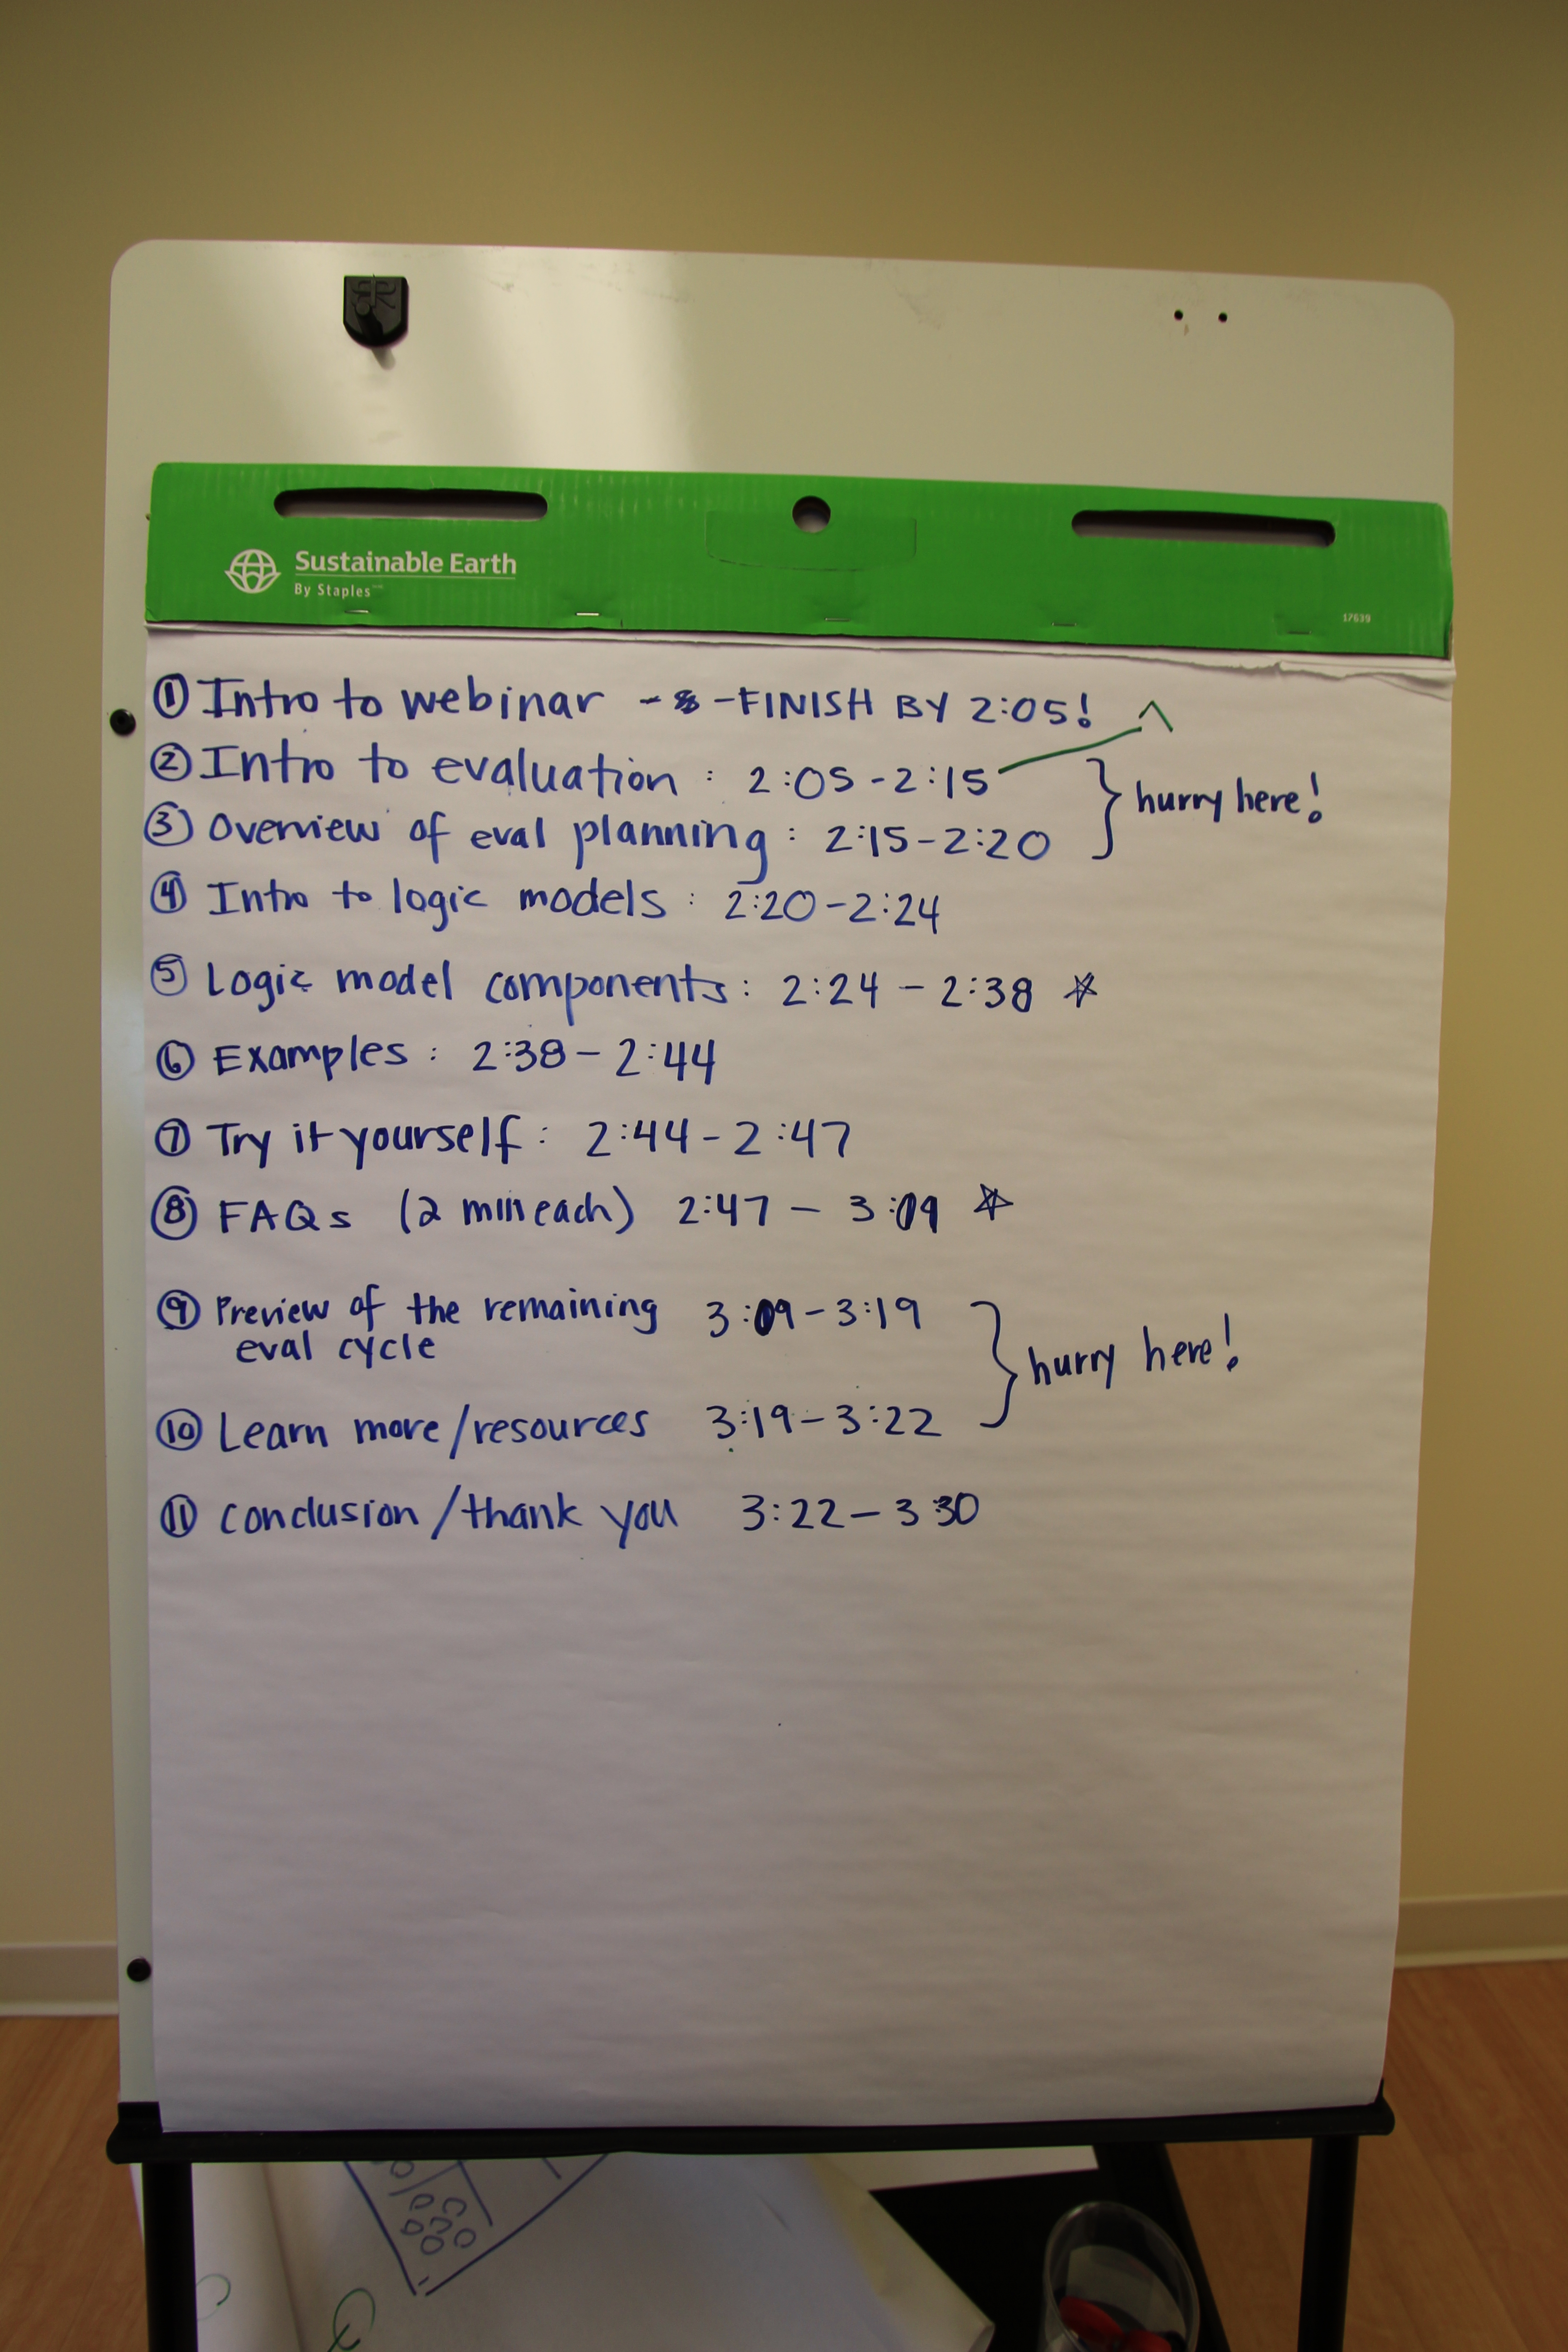 Sustainable Earth
By Staples
17639
① Intro to webinar - - FINISH BY 2:05!
② Intro to evaluation : 2:05-2:15
hurry here!
③ Overview of eval planning : 2:15-2:20
④ Intro to logic models : 2:20-2:24
⑤ Logic model components : 2:24 - 2:38 ☆
⑥ Examples : 2:38 - 2:44
⑦ Try it yourself : 2:44 - 2:47
⑧ FAQs (2 min each) 2:47 - 3:09 ☆
⑨ Preview of the remaining 3:09 - 3:19
eval cycle
hurry here!
⑩ Learn more/resources 3:19 - 3:22
⑪ conclusion/thank you 3:22 - 3 30